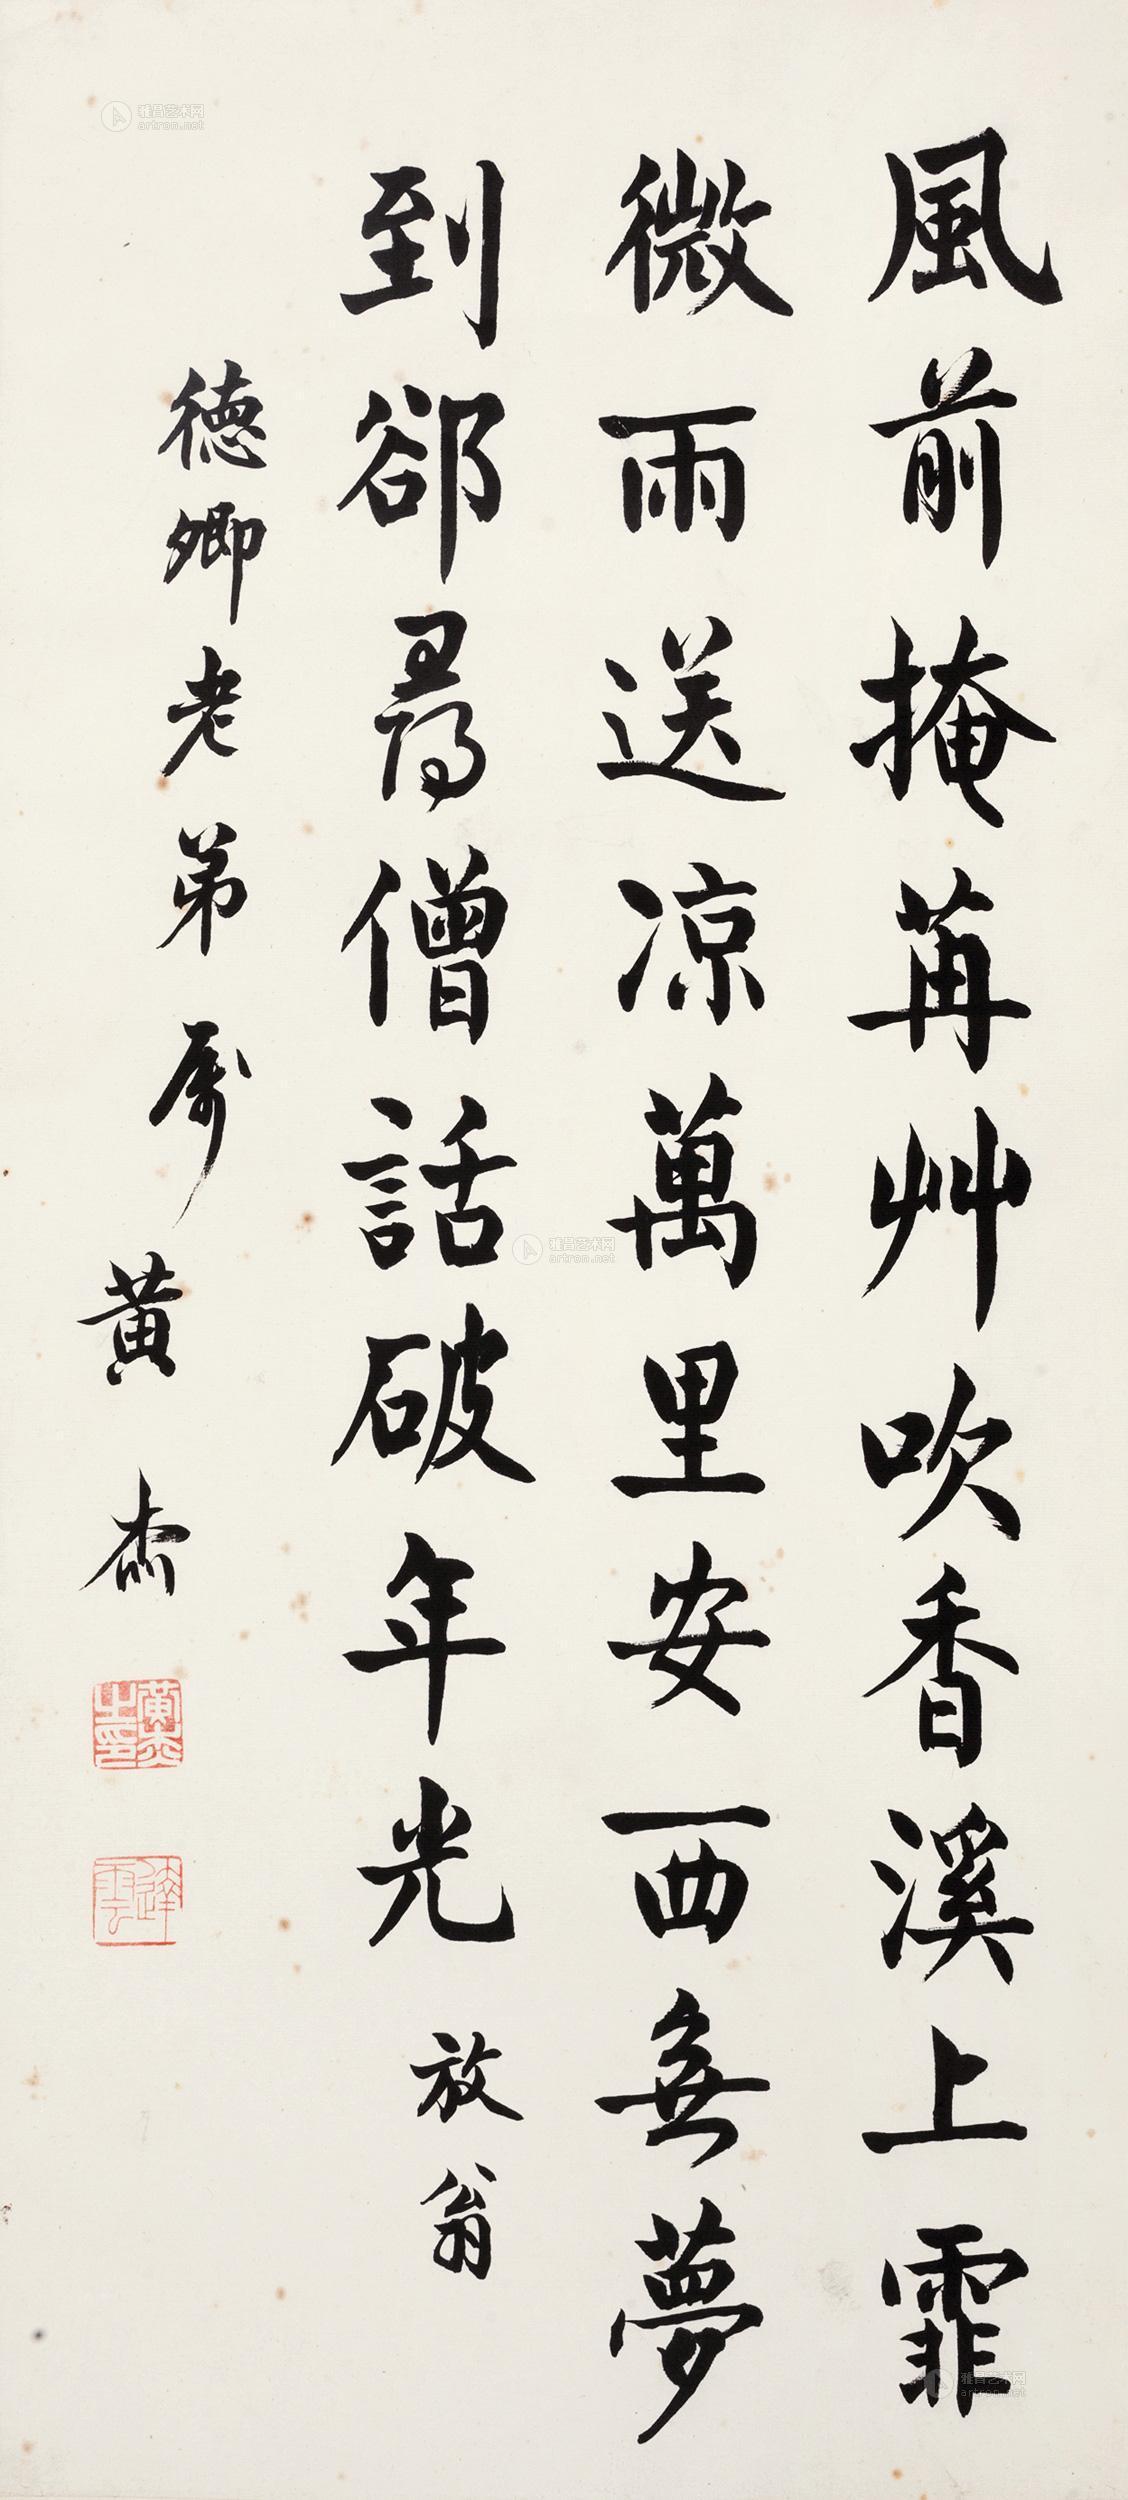 風前掩苒艸吹香溪上霏
微雨送凉萬里安西無夢
到郤尋僧話破年光 放翁
德卿老弟屬
黃杰
黃杰之印
達雲
雅昌艺术网
artron.net
雅昌艺术网
artron.net
雅昌艺术网
artron.net